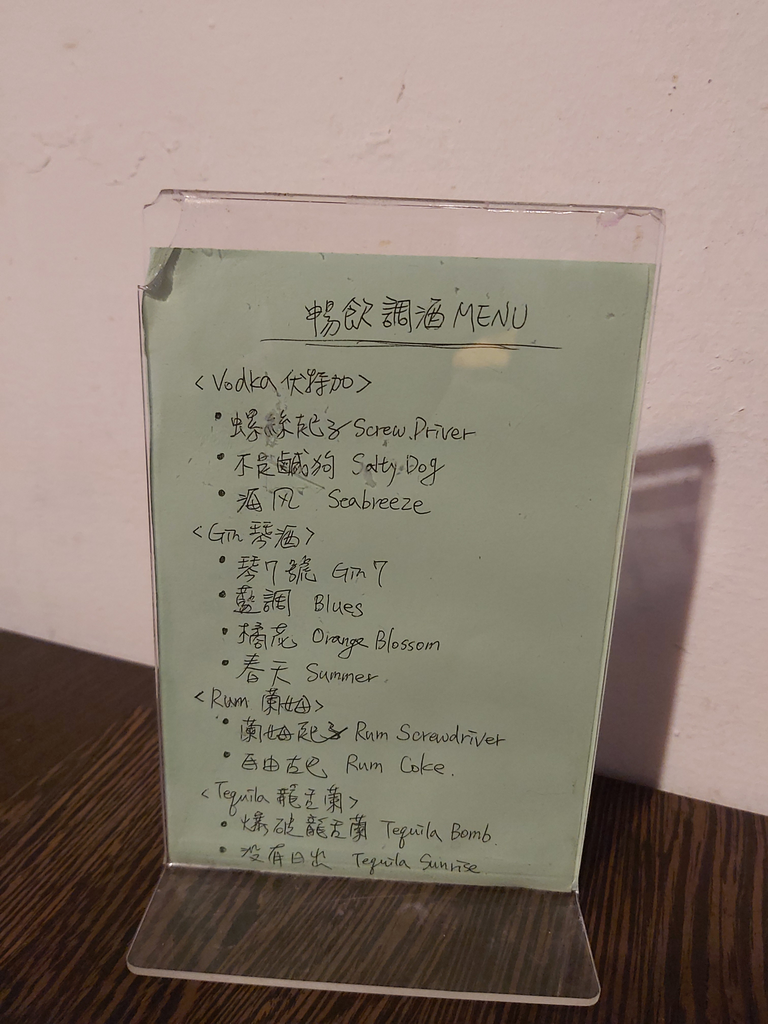 暢飲調酒 MENU
<Vodka 伏特加>
• 螺絲起子 Screw.Driver
• 不是鹹狗 Salty Dog
• 海风 Seabreeze
<Gin 琴酒>
• 琴7號 Gin 7
• 藍調 Blues
• 橘花 Orange Blossom
• 春天 Summer.
<Rum 蘭姆>
• 蘭姆起子 Rum Screwdriver
• 自由古巴 Rum Coke.
<Tequila 龍舌蘭>
• 爆破龍舌蘭 Tequila Bomb.
• 没有日出 Tequila Sunrise.